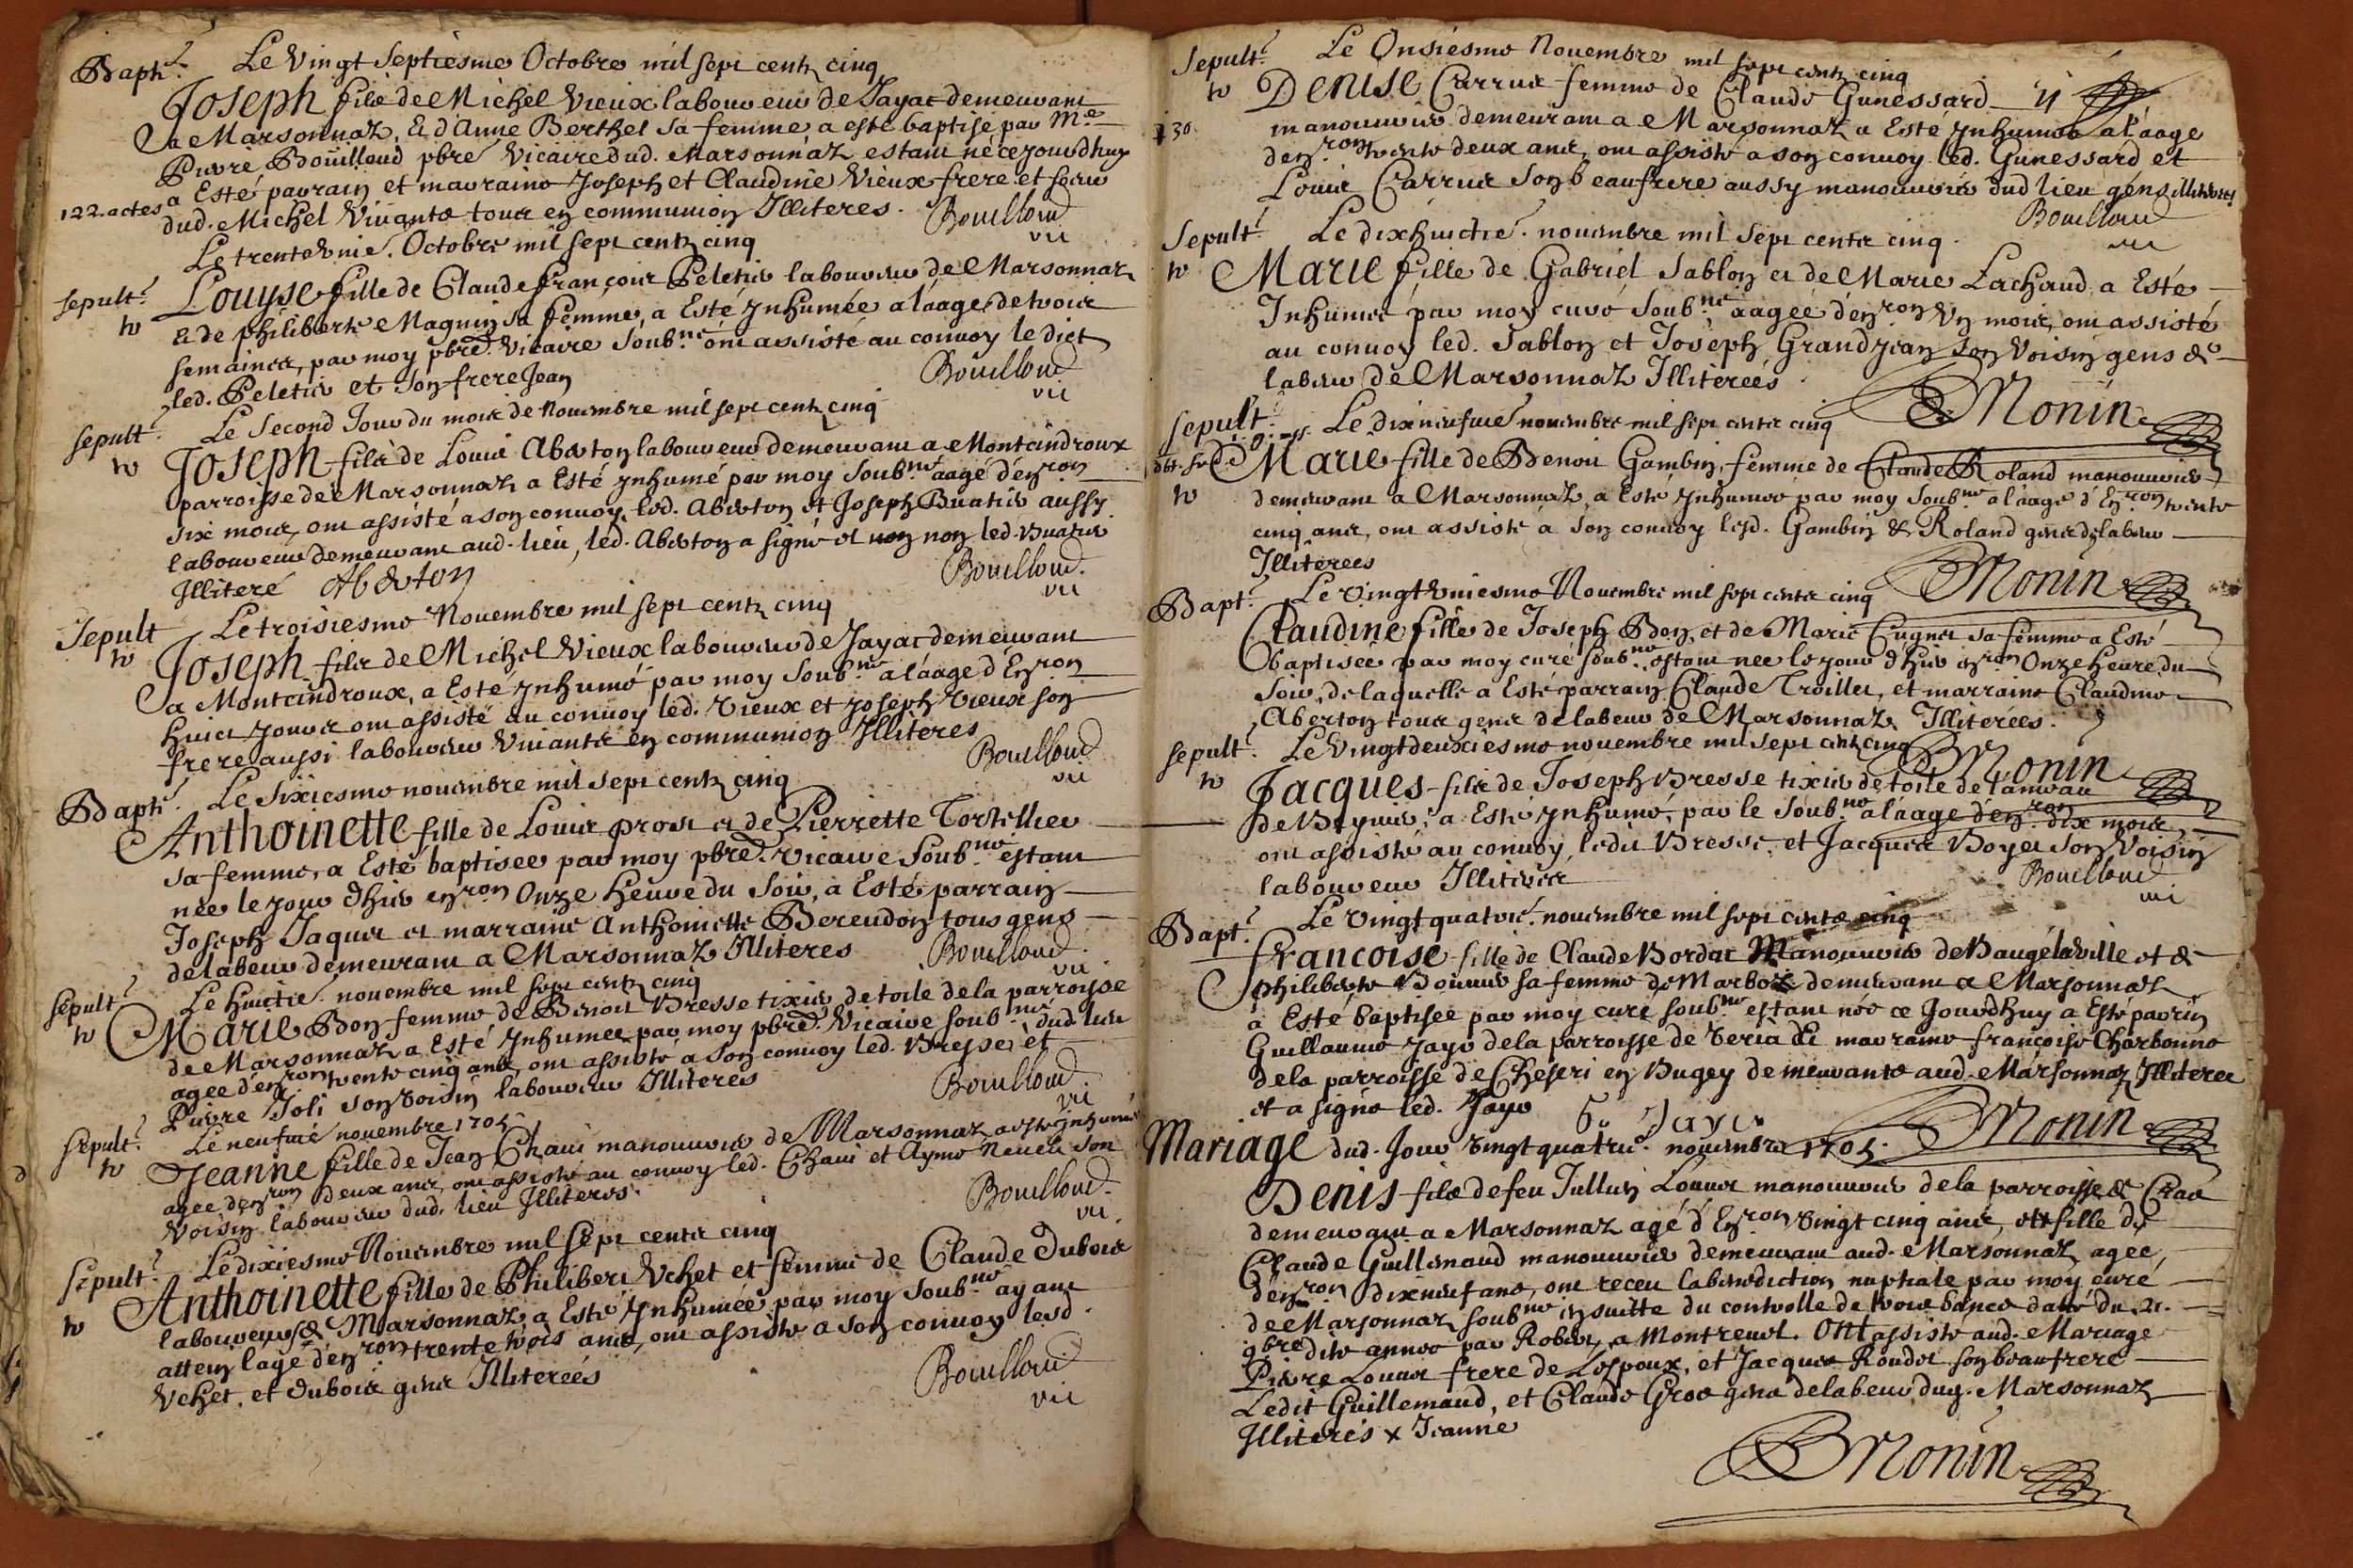 Bapt.e Le Vingt Septiesme Octobre mil sept centz cinq
Joseph filz de Michel Vieux laboureur de Jayat demeurant
a Marsonnaz, & d'Anne Berthet sa femme a esté baptisé par M.e
Pierre Boüilloud pbre Vicaire dud. Marsonnaz estant né ce jourdhuy
a Esté parrain et marraine Joseph et Claudine Vieux frere et soeur
122. actes
dud. Michel Vivants tous en communion Illiteres. Bouilloud
vic
Le trente unie. Octobre mil sept centz cinq
sepult.e Louyse fille de Claude françois Peletier laboureur de Marsonnaz
tr & de philiberte Magnin sa femme, a Esté Inhumée a l'aage de trois
semaines, par moy pbre Vicaire Soub.né ont assisté au convoy ledict
led. Peletier et son frere Jean Bouilloud
vic
sepult.e Le Second Jour du mois de Novembre mil sept centz cinq
tr Joseph filz de Louis Aberton laboureur demeurant a Montcindroux
parroisse de Marsonnaz a Esté inhumé par moy Soub.né aagé d'en.ron
six mois, ont assisté a son convoy led. Aberton et Joseph Buatier aussy
laboureur demeurant aud. lieu, led. Aberton a signé et non led. Buatier
Illiteré Aberton Bouilloud
vic
Sepult Le troisiesme Novembre mil sept centz cinq
tr Joseph filz de Michel Vieux laboureur de Jayat demeurant
a Montcindroux, a Esté inhumé par moy Soub.né a l'aage d'En.ron
huict jours ont assisté au convoy led. Vieux et joseph Vieux son
frere aussi laboureur Vivants en communion Illiteres
Bouilloud
vic
Bapt.e Le Sixiesme novembre mil sept centz cinq
Anthoinette fille de Louis prost et de Pierrette Tortellier
sa femme, a Esté baptisee par moy pbre Vicaire Soub.né estant
née le jour d'hier en.ron Onze heure du Soir, a Esté parrain
Joseph Jaquet et marraine Anthoinette Berendon tous gens
de labeur demeurant a Marsonnaz Illiteres Bouilloud
vic
sepult.e Le huictie. novembre mil sept centz cinq
tr Marie Bon femme de Benoit Bresse tixier de toile de la parroisse
de Marsonnaz a Esté Inhumee par moy pbre Vicaire soub.né dud. lieu
agee d'en.ron trente cinq ans, ont assisté a son convoy led. Bresse et
Pierre Joli son voisin laboureur Illiteres Bouilloud
vic
sepult.e Le neufuie novembre 1705
tr Jeanne fille de Jean Chani manouvrier de Marsonnaz a esté inhumé
agee d'en.ron deux ans, ont assisté au convoy led. Chani et Aymo Neveu son
Voisin laboureur dud. lieu Illiteres. Bouilloud
vic
sepult.e Le dixiesme Novembre mil sept centz cinq
tr Anthoinette fille de Philibert Uchet et femme de Claude Dubois
laboureurs de Marsonnaz a Esté Inhumée par moy Soub.né ayant
attein l'age d'en.ron trente trois ans, ont assisté a son convoy lesd.
Uchet, et Dubois gens Illiterées Bouilloud
vic
Sepult.e Le Onsiesme Novembre mil sept centz cinq
tr Denise Carrux femme de Claude Gunessard
130. manouvrier demeurant a Marsonnaz a Esté inhumée a l'aage
d'en.ron trente deux ans, ont assisté a son convoy led. Gunessard et
Louis Carrux son beaufrere aussy manouvrier dud lieu gens illiterés
Bouilloud
vic
Sepult.e Le dix huictie. novembre mil sept cents cinq.
tr Marie fille de Gabriel Sablon et de Marie Lachaud, a Esté
Inhumée par moy curé Soub.né aagée d'en.ron Un mois, ont assisté
au convoy led. Sablon et Joseph Grandjean son Voisin gens de
labeur de Marsonnaz Illiterées BMonin
sepult.e Le dix neufuie novembre mil sept cents cinq
tr Marie fille de Benoit Gambin, femme de Claude Roland manouvrier
demeurant a Marsonnaz, a Esté inhumée par moy Soub.né a l'aage d'En.ron trente
cinq ans, ont assisté à son convoy lesd. Gambin & Roland gens de labeur
Illiterées
BMonin
Bapt.e Le Vingt uniesme Novembre mil sept cents cinq
Claudine fille de Joseph Bon, et de Marie Cugnet sa femme a Esté
baptisée par moy curé soub.né estant née le jour d'hier en.ron Onze heure du
Soir, de laquelle a Esté parrain Claude Troillet, et marraine Claudine
Aberton tous gens de labeur de Marsonnaz Illiterées.
BMonin
sepult.e Le Vingt deuxiesme novembre mil sept centz cinq
tr Jacques filz de Joseph Bresse tixier de toile de l'anveau
de Beynier, a Esté inhumé, par le Soub.né a l'aage d'en.ron dix mois,
ont assisté au convoy, ledit Bresse, et Jacques Boyer son Voisin
laboureur Illiterées Bouilloud
vic
Bapt.e Le Vingt quatrie. novembre mil sept cents cinq
francoise fille de Claude Bordat Manouvrier de Baugé la ville et de
philiberte Bouvier sa femme de Marboz demeurant a Marsonnaz
a Esté baptisée par moy curé soub.né estant née ce Jourdhuy a Esté parrin
Guillaume Jayr de la parroisse de Veria & marraine françoise Charbonne
de la parroisse de Cheseri en Bugey demeurants aud. Marsonnaz Illiteree
et a signé led. Jayr G. Jayr BMonin
Mariage dud. Jour Vingt quatrie. novembre 1705.
Denis filz de feu Jullien Louvet manouvrier de la parroisse de Cras
demeurant a Marsonnaz agé d'En.ron Vingt cinq ans, et x fille de
Claude Guillemaud manouvrier demeurant aud. Marsonnaz agée
d'en.ron dix neuf ans, ont receu la benediction nuptiale par moy curé
de Marsonnaz soub.né ensuitte du controlle de trois bancs daté du 21.
9bre dite année par Robin, a Montrevel. Ont assisté aud. Mariage
Pierre Louvet frere de L'espoux, et Jacques Roudet son beaufrere
Ledit Guillemaud, et Claude Gros gens de labeur dud. Marsonnaz
Illiterés x Jeanne
BMonin